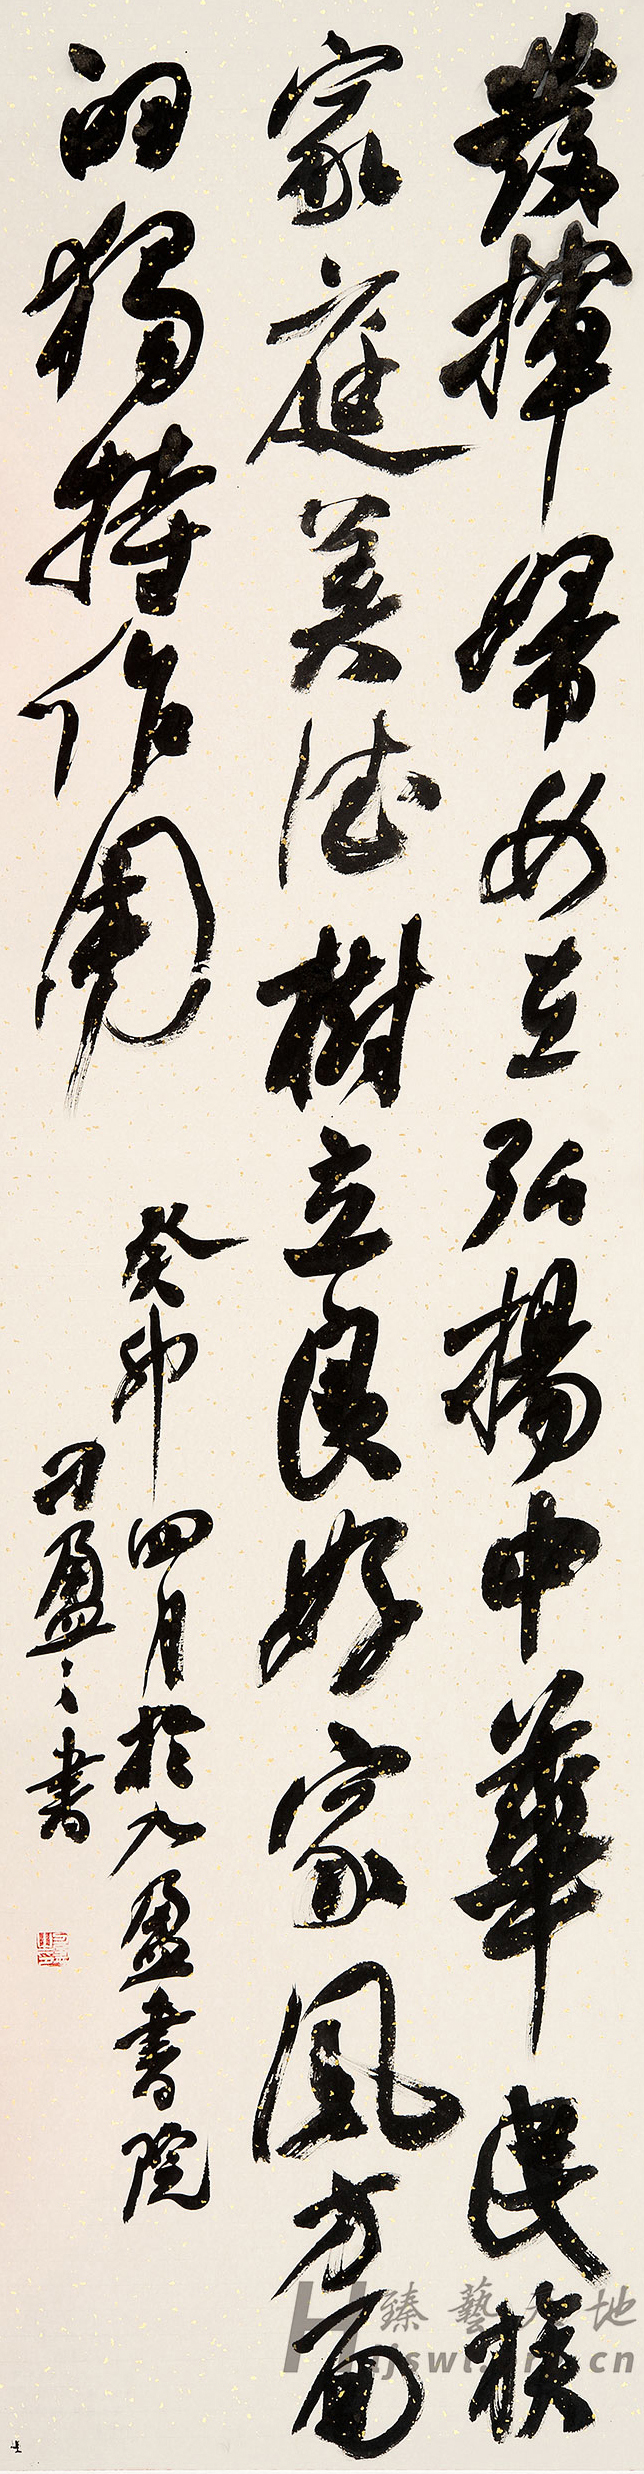 發揮婦女在弘揚中華民族
家庭美德樹立良好家風方面
的獨特作用
癸卯四月於九盈書院
盈之書
臻藝天地